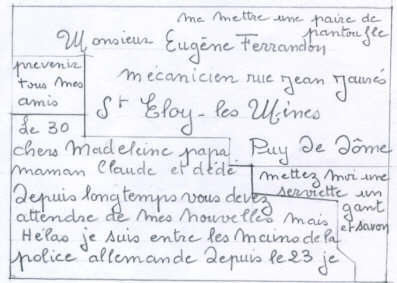 me mettre une paire de
pantoufle
Monsieur Eugène Ferrandon
mécanicien rue Jean Jaurés
St Eloy-les Mines
Puy de Dôme
prevenir
tous mes
amis
le 30
chers Madeleine papa
maman Claude et dédé
mettez moi une
serviette un
gant
et savon
Depuis longtemps vous devez
attendre de mes nouvelles mais
Hélas je suis entre les mains de la
police allemande depuis le 23 je